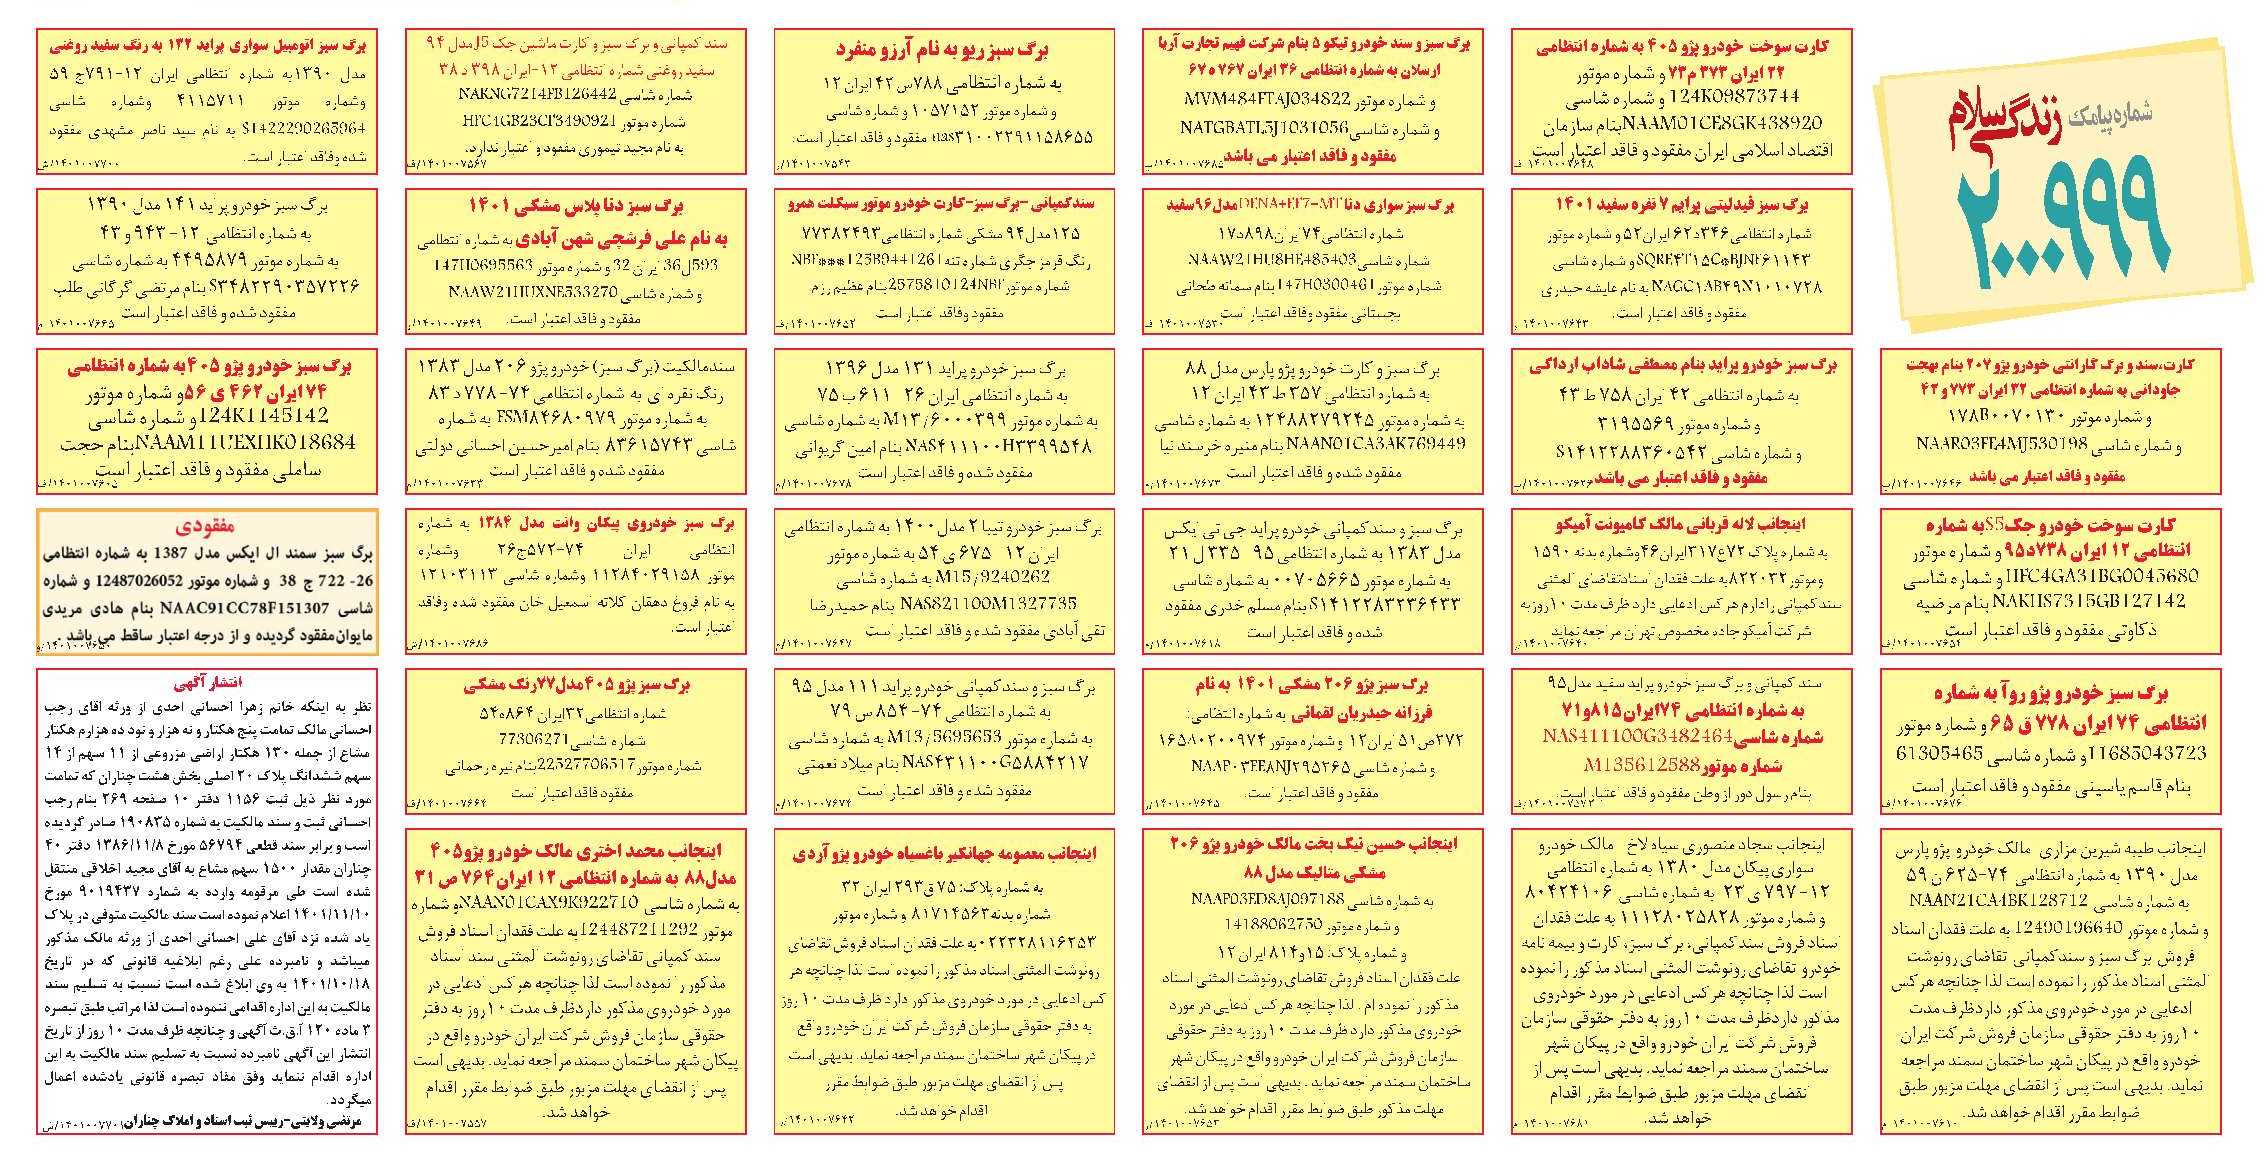 شماره پیامک زندگی سلام
۲۰۰۰۹۹۹
کارت،سند و برگ گارانتی خودرو پژو ۲۰۷ بنام بهجت
جاودانی به شماره انتظامی ۳۲ ایران ۷۷۳ و ۴۲
و شماره موتور ۱۷۸B۰۰۷۰۱۳۰
و شماره شاسی NAAR03FE4MJ530198
مفقود و فاقد اعتبار می باشد
۱۴۰۱۰۰۷۶۴۶/ب
کارت سوخت خودرو جک S5به شماره
انتظامی ۱۲ ایران ۷۳۸د۹۵ و شماره موتور
HFC4GA31BG0045680 و شماره شاسی
NAKHS7315GB127142 بنام مرضیه
ذکاوتی مفقود و فاقد اعتبار است
۱۴۰۱۰۰۷۶۵۴/ف
برگ سبز خودرو پژو روآ به شماره
انتظامی ۷۴ ایران ۷۷۸ ق ۶۵ و شماره موتور
11685043723و شماره شاسی 61305465
بنام قاسم یاسینی مفقود و فاقد اعتبار است
۱۴۰۱۰۰۷۶۷۶/ف
اینجانب طیبه شیرین مزاری مالک خودرو پژو پارس
مدل ۱۳۹۰ به شماره انتظامی ۷۴-۶۲۵ ن ۵۹
به شماره شاسی NAAN21CA4BK128712
و شماره موتور 12490196640 به علت فقدان اسناد
فروش برگ سبز و سندکمپانی تقاضای رونوشت
المثنی اسناد مذکور را نموده است لذا چنانچه هر کس
ادعایی در مورد خودروی مذکور دارد ظرف مدت
۱۰روز به دفتر حقوقی سازمان فروش شرکت ایران
خودرو واقع در پیکان شهر ساختمان سمند مراجعه
نماید. بدیهی است پس از انقضای مهلت مزبور طبق
ضوابط مقرر اقدام خواهد شد.
۱۴۰۱۰۰۷۶۱۰/م
کارت سوخت خودرو پژو ۴۰۵ به شماره انتظامی
۲۲ ایران ۳۷۳ م۷۳ و شماره موتور
124K09873744 و شماره شاسی
NAAM01CE8GK438920بنام سازمان
اقتصاد اسلامی ایران مفقود و فاقد اعتبار است
۱۴۰۱۰۰۷۶۴۸/ف
برگ سبز فیدلیتی پرایم ۷ نفره سفید ۱۴۰۱
شماره انتظامی ۳۴۶د۶۲ ایران۵۲ و شماره موتور
SQRE۴T۱۵C*BJNF۶۱۱۴۳و شماره شاسی
NAGC۱AB۴۹N۱۰۱۰۷۲۸ به نام عایشه حیدری
مفقود و فاقد اعتبار است.
۱۴۰۱۰۰۷۶۴۳/م
برگ سبز خودرو پراید بنام مصطفی شاداب ارداکی
به شماره انتظامی ۴۲ ایران ۷۵۸ ط ۴۳
و شماره موتور ۳۱۹۵۵۶۹
و شماره شاسی S۱۴۱۲۲۸۸۳۶۰۵۴۲
مفقود و فاقد اعتبار می باشد
۱۴۰۱۰۰۷۶۳۶/ب
اینجانب لاله قربانی مالک کامیونت آمیکو
به شماره پلاک ۷۲ع۳۱۷ایران۴۶وشماره بدنه ۱۵۹۰
وموتور۸۲۲۰۳۲به علت فقدان اسنادتقاضای المثنی
سندکمپانی رادارم هرکس ادعایی دارد ظرف مدت ۱۰روزبه
شرکت آمیکو جاده مخصوص تهران مراجعه نماید
۱۴۰۱۰۰۷۶۴۰/ر
سند کمپانی و برگ سبز خودرو پراید سفید مدل۹۵
به شماره انتظامی ۷۴ایران۸۱۵و۷۱
شماره شاسیNAS411100G3482464
شماره موتورM135612588
بنام رسول دور از وطن مفقود و فاقد اعتبار است.
۱۴۰۱۰۰۷۵۷۳/ف
اینجانب سجاد منصوری سیاه لاخ مالک خودرو
سواری پیکان مدل ۱۳۸۰ به شماره انتظامی
۱۲-۷۹۷ ی ۲۳ به شماره شاسی ۸۰۴۲۴۱۰۶
و شماره موتور ۱۱۱۲۸۰۲۵۸۲۸ به علت فقدان
اسناد فروش سندکمپانی، برگ سبز، کارت و بیمه نامه
خودرو تقاضای رونوشت المثنی اسناد مذکور را نموده
است لذا چنانچه هر کس ادعایی در مورد خودروی
مذکور داردظرف مدت ۱۰روز به دفتر حقوقی سازمان
فروش شرکت ایران خودرو واقع در پیکان شهر
ساختمان سمند مراجعه نماید. بدیهی است پس از
انقضای مهلت مزبور طبق ضوابط مقرر اقدام
خواهد شد.
۱۴۰۱۰۰۷۶۸۱/م
برگ سبز و سند خودرو تیکو ۵ بنام شرکت فهیم تجارت آریا
ارسلان به شماره انتظامی ۳۶ ایران ۷۶۷ ه ۶۷
و شماره موتور MVM484FTAJ034822
و شماره شاسی NATGBATL5J1031056
مفقود و فاقد اعتبار می باشد
۱۴۰۱۰۰۷۶۸۵/ب
برگ سبز سواری دنا DENA+EF7-MTمدل۹۶سفید
شماره انتظامی۷۴ ایران۸۹۸د۱۷
شماره شاسی NAAW21HU8HE485403
شماره موتور 147H0300461 بنام سمانه طحانی
بجستانی مفقود وفاقد اعتبار است
۱۴۰۱۰۰۷۵۳۰/ف
برگ سبز و کارت خودرو پژو پارس مدل ۸۸
به شماره انتظامی ۳۵۷ ط ۴۳ ایران ۱۲
به شماره موتور ۱۲۴۸۸۲۷۹۲۴۵ به شماره شاسی
NAAN01CA3AK769449 بنام منیره خرسند نیا
مفقود شده و فاقد اعتبار است
۱۴۰۱۰۰۷۶۷۳/ه
برگ سبز و سند کمپانی خودرو پراید جی تی ایکس
مدل ۱۳۸۳ به شماره انتظامی ۹۵ ۳۳۵ ل ۲۱
به شماره موتور ۰۰۷۰۵۶۶۵ به شماره شاسی
S۱۴۱۲۲۸۳۲۳۶۴۳۳ بنام مسلم خدری مفقود
شده و فاقد اعتبار است
۱۴۰۱۰۰۷۶۱۸/م
برگ سبز پژو ۲۰۶ مشکی ۱۴۰۱ به نام
فرزانه حیدریان لقمانی به شماره انتظامی:
۲۷۲ص۵۱ ایران۱۲ و شماره موتور ۱۶۵۸۰۲۰۰۹۷۴
و شماره شاسی NAAP۰۳EE۸NJ۲۹۵۲۶۵
مفقود و فاقد اعتبار است.
۱۴۰۱۰۰۷۶۴۵/ر
اینجانب حسین نیک بخت مالک خودرو پژو ۲۰۶
مشکی متالیک مدل ۸۸
به شماره شاسی NAAP03ED8AJ097188
و شماره موتور 14188062750
و شماره پلاک: ۱۵و۸۱۴ ایران ۱۲
علت فقدان اسناد فروش تقاضای رونوشت المثنی اسناد
مذکور را نموده ام . لذا چنانچه هر کس ادعایی در مورد
خودروی مذکور دارد ظرف مدت ۱۰روز به دفتر حقوقی
سازمان فروش شرکت ایران خودرو واقع در پیکان شهر
ساختمان سمند مراجعه نماید . بدیهی است پس از انقضای
مهلت مذکور طبق ضوابط مقرر اقدام خواهد شد.
۱۴۰۱۰۰۷۶۵۳/ر
برگ سبز ریو به نام آرزو منفرد
به شماره انتظامی ۷۸۸س ۴۲ ایران ۱۲
و شماره موتور ۱۰۵۷۱۵۲ و شماره شاسی
nas۳۱۰۰۲۳۹۱۱۵۸۶۵۵ مفقود و فاقد اعتبار است.
۱۴۰۱۰۰۷۵۴۳/ر
سندکمپانی -برگ سبز-کارت خودرو موتور سیکلت همرو
۱۲۵مدل۹۴ مشکی شماره انتظامی۷۷۳۸۲۴۹۳
رنگ قرمز جگری شماره تنه NBF***125B9441261
شماره موتور2575810124NBFبنام عظیم رزم
مفقود وفاقد اعتبار است
۱۴۰۱۰۰۷۶۵۲/ف
برگ سبز خودرو پراید ۱۳۱ مدل ۱۳۹۶
به شماره انتظامی ایران ۲۶ ۶۱۱ ب ۷۵
به شماره موتور M۱۳/۶۰۰۰۳۹۹ به شماره شاسی
NAS۴۱۱۱۰۰H۳۳۹۹۵۴۸ بنام امین گریوانی
مفقود شده و فاقد اعتبار است
۱۴۰۱۰۰۷۶۷۸/م
برگ سبز خودرو تیبا ۲ مدل ۱۴۰۰ به شماره انتظامی
ایران ۱۲ ۶۷۵ ی ۵۴ به شماره موتور
M15/9240262 به شماره شاسی
NAS821100M1327735 بنام حمیدرضا
تقی آبادی مفقود شده و فاقد اعتبار است
۱۴۰۱۰۰۷۶۴۷/م
برگ سبز و سند کمپانی خودرو پراید ۱۱۱ مدل ۹۵
به شماره انتظامی ۷۴-۸۵۴ س ۷۹
به شماره موتور M13/5695653 به شماره شاسی
NAS۴۳۱۱۰۰G۵۸۸۴۲۱۷ بنام میلاد نعمتی
مفقود شده و فاقد اعتبار است
۱۴۰۱۰۰۷۶۷۴/م
اینجانب معصومه جهانگیر باغسیاه خودرو پژو آردی
به شماره پلاک: ۷۵ ق۲۹۳ ایران ۳۲
شماره بدنه۸۱۷۱۴۵۶۳ و شماره موتور
۰۲۲۳۲۸۱۱۶۲۵۳به علت فقدان اسناد فروش تقاضای
رونوشت المثنی اسناد مذکور را نموده است لذا چنانچه هر
کس ادعایی در مورد خودروی مذکور دارد ظرف مدت ۱۰ روز
به دفتر حقوقی سازمان فروش شرکت ایران خودرو واقع
در پیکان شهر ساختمان سمند مراجعه نماید. بدیهی است
پس از انقضای مهلت مزبور طبق ضوابط مقرر
اقدام خواهد شد.
۱۴۰۱۰۰۷۶۴۲/ر
سند کمپانی و برگ سبز و کارت ماشین جک J5مدل ۹۴
سفید روغنی شماره انتظامی ۱۲-ایران ۳۹۸ د ۳۸
شماره شاسی NAKNG7214FB126442
شماره موتور HFC4GB23CF3490921
به نام مجید تیموری مفقود و اعتبار ندارد.
۱۴۰۱۰۰۷۵۶۷/ف
برگ سبز دنا پلاس مشکی ۱۴۰۱
به نام علی فرشچی شهن آبادی به شماره انتظامی
593ل36 ایران 32 و شماره موتور 147H0695563
و شماره شاسی NAAW21HUXNE533270
مفقود و فاقد اعتبار است.
۱۴۰۱۰۰۷۶۴۹/ر
سندمالکیت (برگ سبز) خودرو پژو ۲۰۶ مدل ۱۳۸۳
رنگ نقره ای به شماره انتظامی ۷۴-۷۷۸ د ۸۳
به شماره موتور FSM۸۴۶۸۰۹۷۹ به شماره
شاسی ۸۳۶۱۵۷۴۳ بنام امیرحسین احسانی دولتی
مفقود شده و فاقد اعتبار است
۱۴۰۱۰۰۷۶۳۳/م
برگ سبز خودروی پیکان وانت مدل ۱۳۸۴ به شماره
انتظامی ایران ۷۴-۵۷۲ج۲۶ وشماره
موتور ۱۱۲۸۴۰۲۹۱۵۸ وشماره شاسی ۱۲۱۰۳۱۱۳
به نام فروغ دهقان کلاته اسمعیل خان مفقود شده وفاقد
اعتبار است.
۱۴۰۱۰۰۷۶۸۶/ش
برگ سبز پژو ۴۰۵مدل۷۷رنگ مشکی
شماره انتظامی۳۲ایران ۸۶۴ه۵۴
شماره شاسی77306271
شماره موتور22527706517بنام نیره رحمانی
مفقود فاقد اعتبار است
۱۴۰۱۰۰۷۶۶۴/ف
اینجانب محمد اختری مالک خودرو پژو۴۰۵
مدل۸۸ به شماره انتظامی ۱۲ ایران۷۶۴ ص ۳۱
به شماره شاسی NAAN01CAX9K922710و شماره
موتور 124487211292به علت فقدان اسناد فروش
سند کمپانی تقاضای رونوشت المثنی سند اسناد
مذکور را نموده است لذا چنانچه هرکس ادعایی در
مورد خودروی مذکور داردظرف مدت ۱۰روز به دفتر
حقوقی سازمان فروش شرکت ایران خودرو واقع در
پیکان شهر ساختمان سمند مراجعه نماید. بدیهی است
پس از انقضای مهلت مزبور طبق ضوابط مقرر اقدام
خواهد شد.
۱۴۰۱۰۰۷۵۵۷/ف
برگ سبز اتومبیل سواری پراید ۱۳۲ به رنگ سفید روغنی
مدل ۱۳۹۰به شماره انتظامی ایران ۱۲-۷۹۱ج ۵۹
وشماره موتور ۴۱۱۵۷۱۱ وشماره شاسی
S1422290265964 به نام سید ناصر مشهدی مفقود
شده وفاقد اعتبار است.
۱۴۰۱۰۰۷۷۰۰/ش
برگ سبز خودرو پراید ۱۴۱ مدل ۱۳۹۰
به شماره انتظامی ۱۲-۹۴۳ و ۴۳
به شماره موتور ۴۴۹۵۸۷۹ به شماره شاسی
S۳۴۸۲۲۹۰۳۵۷۲۲۶ بنام مرتضی گرگانی طلب
مفقود شده و فاقد اعتبار است
۱۴۰۱۰۰۷۶۶۵/م
برگ سبز خودرو پژو ۴۰۵به شماره انتظامی
۷۴ ایران ۴۶۲ ی ۵۶و شماره موتور
124K1145142و شماره شاسی
NAAM11UEXHK018684بنام حجت
ساملی مفقود و فاقد اعتبار است
۱۴۰۱۰۰۷۶۰۵/ف
مفقودی
برگ سبز سمند ال ایکس مدل 1387 به شماره انتظامی
26- 722 ج 38 و شماره موتور 12487026052 و شماره
شاسی NAAC91CC78F151307 بنام هادی مریدی
مایوان‌مفقود گردیده و از درجه اعتبار ساقط می باشد .
۱۴۰۱۰۰۷۶۵۰/و
انتشار آگهی
نظر به اینکه خانم زهرا احسانی احدی از ورثه آقای رجب
احسانی مالک تمامت پنج هکتار و نه هزار و نود ده هزارم هکتار
مشاع از جمله ۱۳۰ هکتار اراضی مزروعی از ۱۱ سهم از ۱۴
سهم ششدانگ پلاک ۲۰ اصلی بخش هشت چناران که تمامت
مورد نظر ذیل ثبت ۱۱۵۶ دفتر ۱۰ صفحه ۲۶۹ بنام رجب
احسانی ثبت و سند مالکیت به شماره ۱۹۰۸۳۵ صادر گردیده
است و برابر سند قطعی ۵۶۷۹۴ مورخ ۱۳۸۶/۱۱/۸ دفتر ۴۰
چناران مقدار ۱۵۰۰ سهم مشاع به آقای مجید اخلاقی منتقل
شده است طی مرقومه وارده به شماره ۹۰۱۹۴۳۷ مورخ
۱۴۰۱/۱۱/۱۰ اعلام نموده است سند مالکیت متوفی در پلاک
یاد شده نزد آقای علی احسانی احدی از ورثه مالک مذکور
میباشد و نامبرده علی رغم ابلاغیه قانونی که در تاریخ
۱۴۰۱/۱۰/۱۸ به وی ابلاغ شده است نسبت به تسلیم سند
مالکیت به این اداره اقدامی ننموده است لذا مراتب طبق تبصره
۳ ماده ۱۲۰ آ.ق.ث آگهی و چنانچه ظرف مدت ۱۰ روز از تاریخ
انتشار این آگهی نامبرده نسبت به تسلیم سند مالکیت به این
اداره اقدام ننماید وفق مفاد تبصره قانونی یادشده اعمال
میگردد.
مرتضی ولایتی-رییس ثبت اسناد و املاک چناران
۱۴۰۱۰۰۷۷۰۱/ش